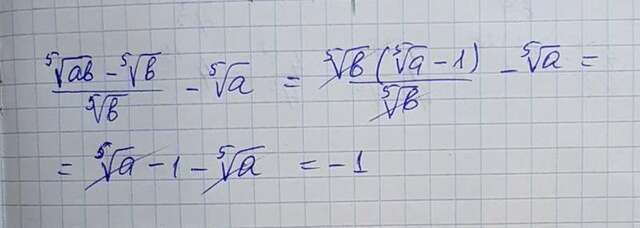 \frac{\sqrt[5]{ab} - \sqrt[5]{b}}{\sqrt[5]{b}} - \sqrt[5]{a} = \frac{\sqrt[5]{b}(\sqrt[5]{a} - 1)}{\sqrt[5]{b}} - \sqrt[5]{a} =
= \sqrt[5]{a} - 1 - \sqrt[5]{a} = -1